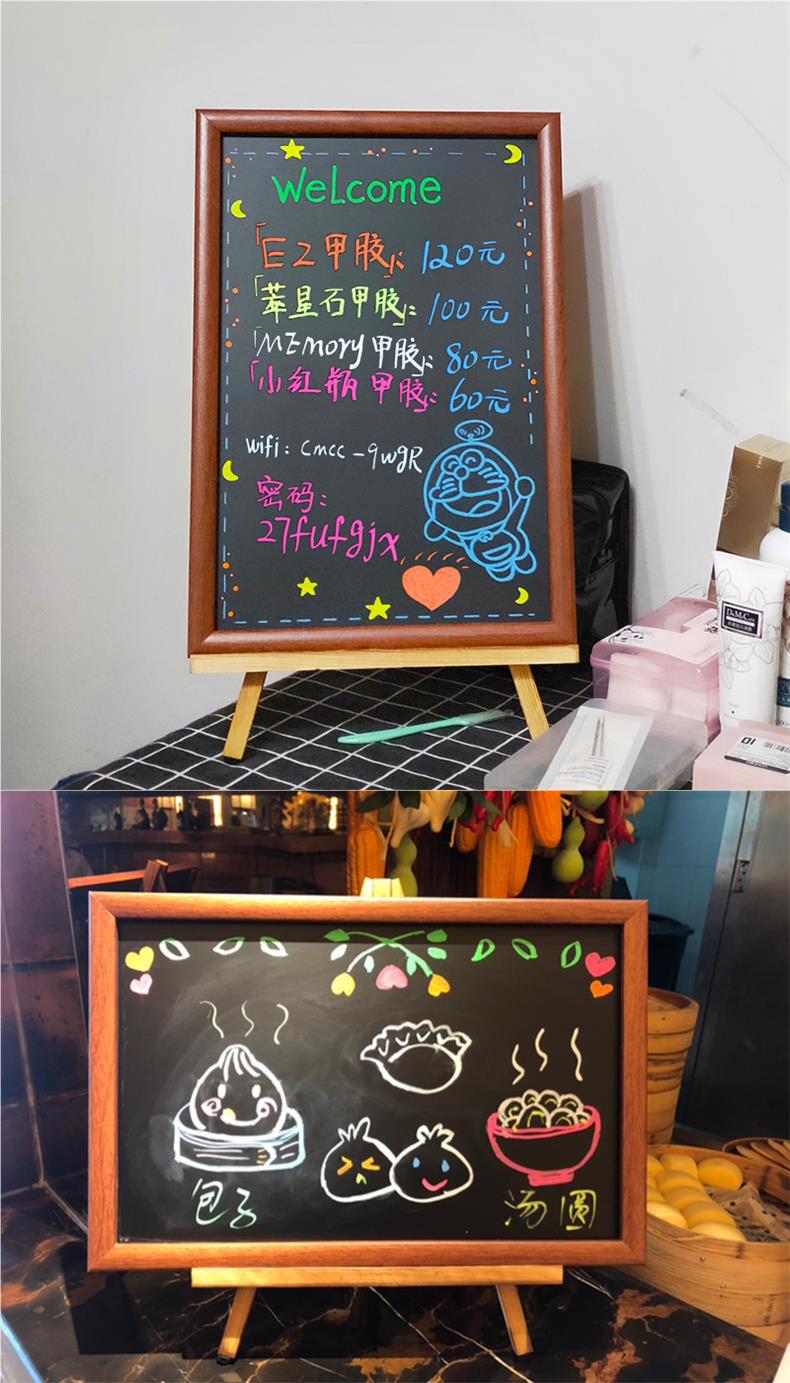 Welcome
「EZ甲胶」: 120元
「萃星石甲胶」: 100元
「MEmory甲胶」: 80元
「小红瓶甲胶」: 60元
wifi: cmcc-9wgR
密码:
27fufgjx
D.M.C
01
包子
汤圆